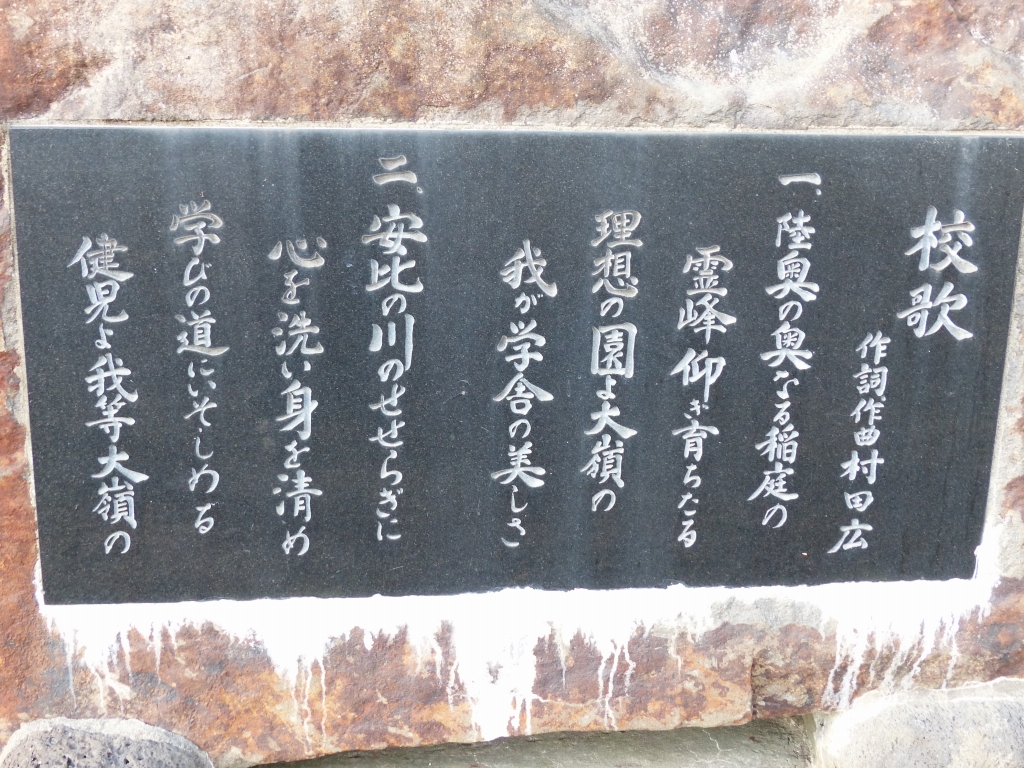 校歌
作詞作曲村田広
一、陸奥の奥なる稲庭の
霊峰仰ぎ育ちたる
理想の園よ大嶺の
我が学舎の美しさ
二、安比の川のせせらぎに
心を洗い身を清め
学びの道にいそしめる
健児よ我等大嶺の